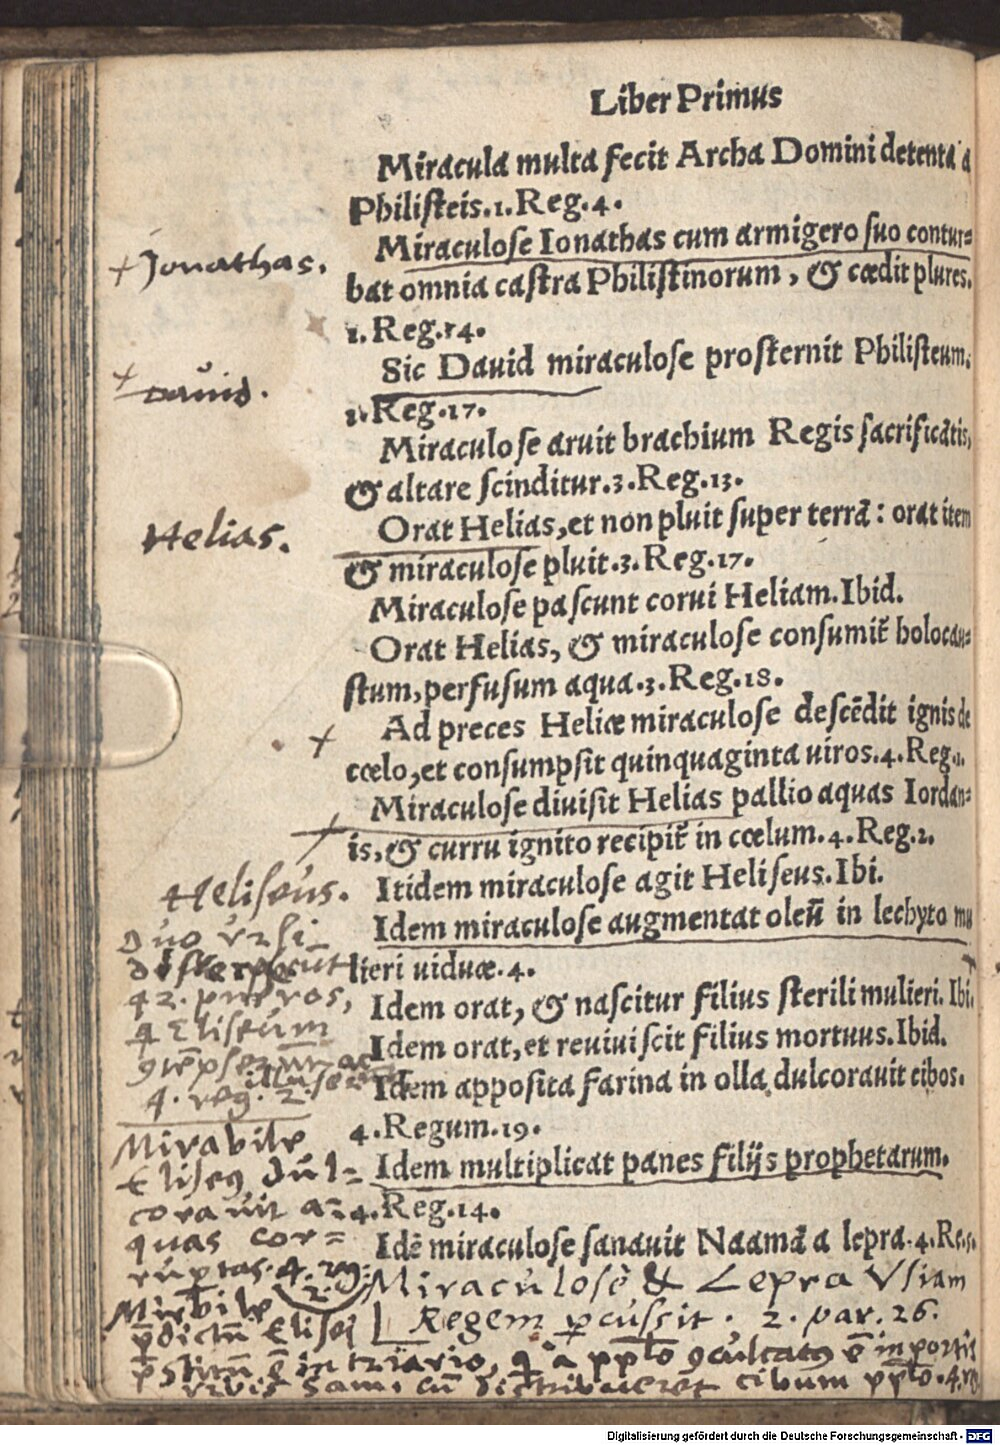 Liber Primus
Miracula multa fecit Archa Domini detenta a
Philisteis.1.Reg.4.
Miraculose Ionathas cum armigero suo contur=
bat omnia castra Philistinorum, & cædit plures.
1.Reg.14.
Sic Dauid miraculose prosternit Philisteum.
1.Reg.17.
Miraculose aruit brachium Regis sacrificãtis,
& altare scinditur.3.Reg.13.
Orat Helias, et non pluit super terrã: orat item
& miraculose pluit.3.Reg.17.
Miraculose pascunt corui Heliam.Ibid.
Orat Helias, & miraculose consumit̃ holocau=
stum, perfusum aqua.3.Reg.18.
Ad preces Heliæ miraculose descẽdit ignis de
cœlo, et consumpsit quinquaginta uiros.4.Reg.1.
Miraculose diuisit Helias pallio aquas Iordan=
is, & curru ignito recipit̃ in cœlum.4.Reg.2.
Itidem miraculose agit Heliseus.Ibi.
Idem miraculose augmentat oleũ in lechyto mu
lieri uiduæ.4.
Idem orat, & nascitur filius sterili mulieri.Ibi.
Idem orat, et reuiuiscit filius mortuus.Ibid.
Idem apposita farina in olla, dulcorauit cibos.
4.Regum.19.
Idem multiplicat panes filijs prophetarum.
4.Reg.14.
Idẽ miraculose sanauit Naamã a lepra.4.Re.5.
Miraculosè & Lepra Vsiam
Regem p̱cussit. 2. par. 26.
+ Jonathas.
+ Dauid.
Helias.
+
Heliseus.
Duo Vrsi
discerpserũt
42. pueros,
q̃ Elisæum
4. reg. 2.
Mirabile
Eliseꝰ dul=
corauit a=
quas cor=
ruptas. 4. reg.
2.
Mirabile
p̃dictũ Elisei
ĩ triario, q̃ a pp̃lo ꝯculcatꝰ ẽ in portis
vrbis Sam. cũ distribueret cibum pp̃lo. 4. reg
Digitalisierung gefördert durch die Deutsche Forschungsgemeinschaft - DFG